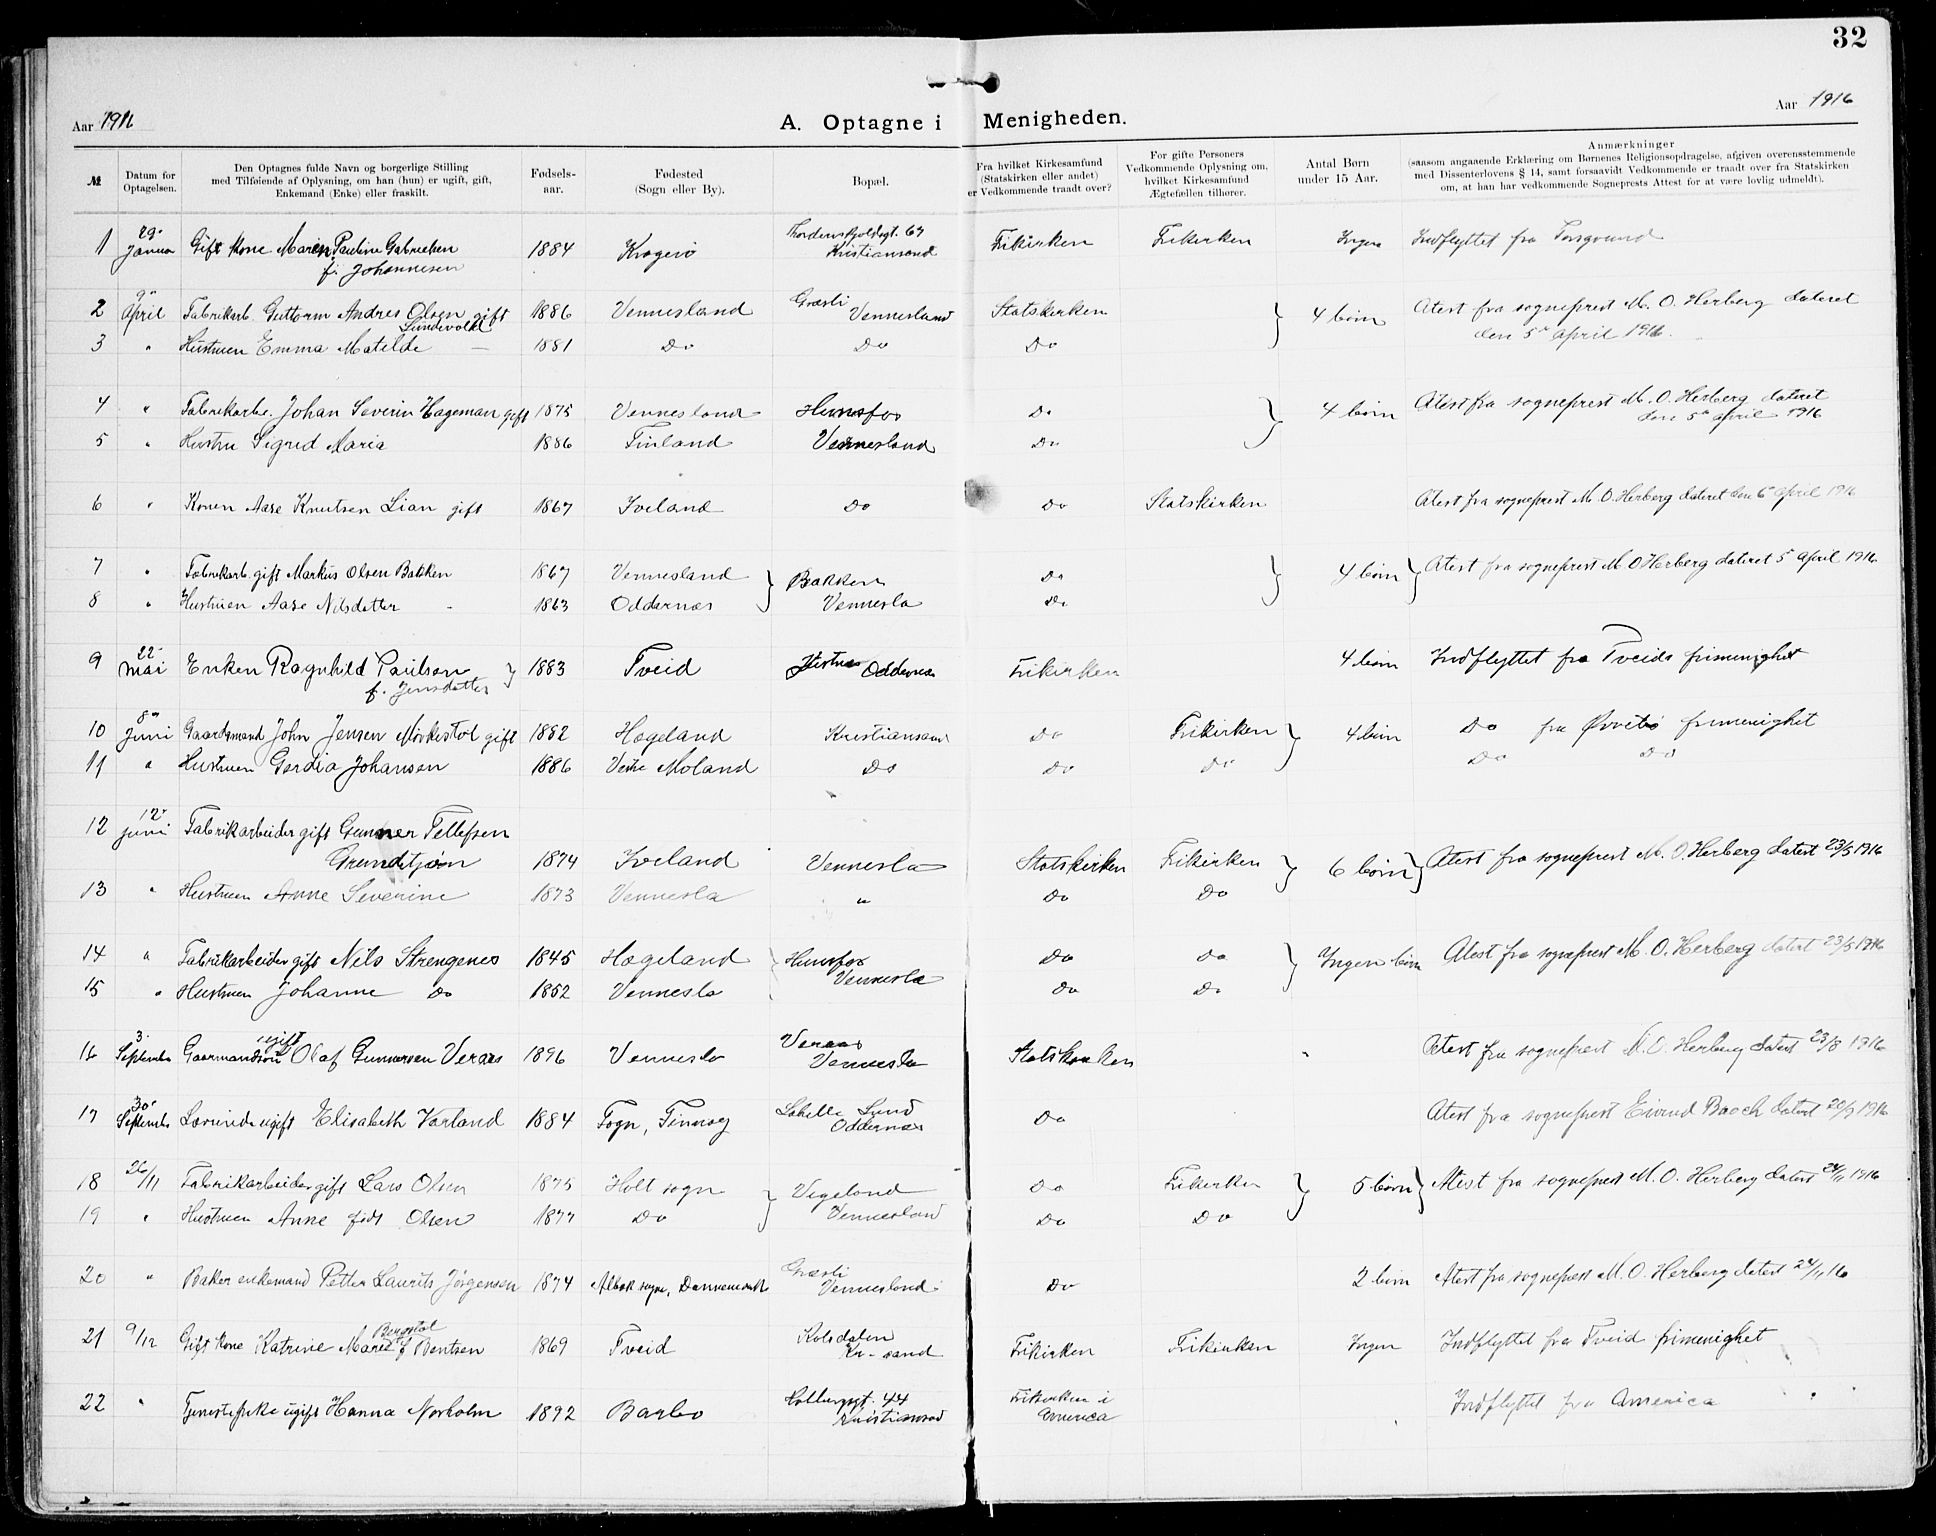 32
Aar 1916
A. Optagne i Menigheden.
Aar 1916
№
Datum for Optagelsen.
Den Optagnes fulde Navn og borgerlige Stilling
med Tilføiende af Oplysning, om han (hun) er ugift, gift,
Enkemand (Enke) eller fraskilt.
Fødsels-
aar.
Fødested
(Sogn eller By).
Bopæl.
Fra hvilket Kirkesamfund
(Statskirken eller andet)
er Vedkommende traadt over?
For gifte Personers
Vedkommende Oplysning om,
hvilket Kirkesamfund
Ægtefællen tilhører.
Antal Børn
under 15 Aar.
Anmærkninger
(saasom angaaende Erklæring om Børnenes Religionsopdragelse, afgiven overensstemmende
med Dissenterlovens § 14, samt forsaavidt Vedkommende er traadt over fra Statskirken
om, at han har vedkommende Sogneprests Attest for at være lovlig udmeldt).
1 29 Januar Gift kone Maren Pauline Gabrielsen 1884 Kragerø Tordenskjoldsgt. 67 Kristiansand Frikirken Frikirken Ingen Indflyttet fra
f. Johannesen
2 9 April Fabrikarb. Guttorm Andres Olsen gift 1886 Vennesland Græsli Vennesland Statskirken } 4 børn Atest fra sogneprest M. O. Herberg dateret
den 5 april 1916.
3 " Hustruen Emma Matilde — 1881 Do Do Do
4 " Fabrikarb. Johan Severin Hageman gift 1875 Vennesland Hunsfos Do } 4 børn Atest fra sogneprest M. O. Herberg dateret
den 5 april 1916
5 " Hustru Sigrid Maria 1886 Finland Vennesland Do
6 " Konen Aase Knutsen Lian gift 1867 Iveland Do Do Statskirken Atest fra sogneprest M. O. Herberg dateret den 6 april 1916
7 " Fabrikarb. gift Markus Olsen Bakken 1867 Vennesland } Bakken Do } 4 børn } Atest fra sogneprest M. O Herberg dateret 5 april 1916
8 " Hustruen Aase Nilsdatter " 1863 Oddernæs Vennesla Do
9 22 Mai Enken Ragnhild Paulsen } 1883 Tveid Oddernæs Frikirken 4 børn Indflyttet fra Tveids frimenighet
f. Jensdatter
10 8 Juni Gaardsmand John Jensen Mørkestøl gift 1882 Hægeland Kristiansand Do Frikirken } 4 børn Do fra Øvrebø frimenighet
11 " Hustruen Gerdia Johansen 1886 Vestre Moland Do Do Do Do Do
12 12 juni Fabrikarbeider gift Gunner Tellefsen
Grundetjøn 1874 Iveland Vennesla Statskirken Frikirken } 6 børn } Atest fra sogneprest M. O. Herberg datert 23/5 1916
13 " Hustruen Anne Severine 1873 Vennesla " Do Do
14 " Fabrikarbeider gift Nils Strengenes 1845 Hægeland Hunsfos Do Do } Ingen børn Atest fra sogneprest M. O. Herberg datert 23/5 1916
15 " Hustruen Johanne Do 1852 Vennesla Vennesla Do Do
16 3 September Gaarmandsøn ugift Olaf Gunnersen Veraas 1896 Vennesla Veraas Vennesla Statskirken " Atest fra sogneprest M. O. Herberg datert 23/8 1916
17 30 September Lærerinde ugift Elisabeth Varland 1884 Fogn, Finnøy Lund Oddernæs Do Atest fra sogneprest Eivind Baach datert 20/9 1916
18 26/11 Fabrikarbeider gift Lars Olsen 1875 Holt sogn } Vigeland Do Frikirken } 5 børn } Atest fra sogneprest M. O. Herberg datert 24/11 1916
19 " Hustruen Anne født Olsen 1877 Do Vennesland Do Do
20 " Baker enkemand Petter Laurits Jørgensen 1874 Albæk sogn, Dannemark Græsli Vennesland Do 2 børn Atest fra sogneprest M. O. Herberg datert 24/11 16
21 9/12 Gift kone Katrine Marie Bergstøl f Bentsen 1869 Tveid Kolsdalen Kr-sand Frikirken Frikirken Ingen Indflyttet fra Tveid frimenighet
22 " Tjenestepike ugift Hanna Norholm 1892 Barbo Holbergsgt. 44 Kristiansand Frikirken i America Indflyttet fra America